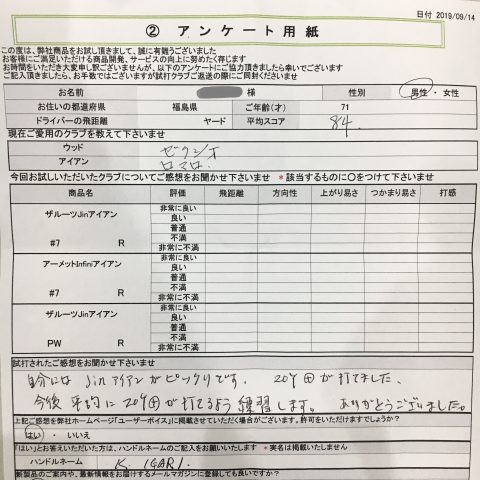 日付 2019/09/14
② アンケート用紙
この度は、弊社商品をお試し頂きまして、誠に有難うございました
お客様にご満足いただける商品開発、サービスの向上に努めたく存じます
お時間をいただき大変申し訳ございませんが、以下のアンケートにご協力頂きましたら幸いでございます
ご記入頂きましたら、お手数ではございますが試打クラブご返送の際にご同封くださいませ
お名前 様 性別 男性・女性
お住いの都道府県 福島県 ご年齢(才) 71
ドライバーの飛距離 ヤード 平均スコア 84.
現在ご愛用のクラブを教えて下さいませ
ウッド ゼクシオ
アイアン ロマロ.
今回お試しいただいたクラブについてご感想をお聞かせ下さいませ *該当するものに〇をつけて下さいませ
商品名 評価 飛距離 方向性 上がり易さ つかまり易さ 打感
ザルーツJinアイアン
#7 R
非常に良い
良い
普通
不満
非常に不満
アーメットInfiniアイアン
#7 R
非常に良い
良い
普通
不満
非常に不満
ザルーツJinアイアン
PW R
非常に良い
良い
普通
不満
非常に不満
試打されたご感想をお聞かせ下さいませ
自分には Jinアイアンがピッタリです。 が打てました、
今後 平均に が打てるよう 練習します。 ありがとうございました。
上記ご感想を弊社ホームページ「ユーザーボイス」に掲載させていただく場合がございます。許可をいただけますでしょうか?
はい ・ いいえ
「はい」とお答えいただいた方は、ハンドルネームのご記入をお願いいたします *実名は掲載いたしません
ハンドルネーム K. IGARI.
新製品のご案内や、最新情報をお届けするメールマガジンに登録しても良いですか?